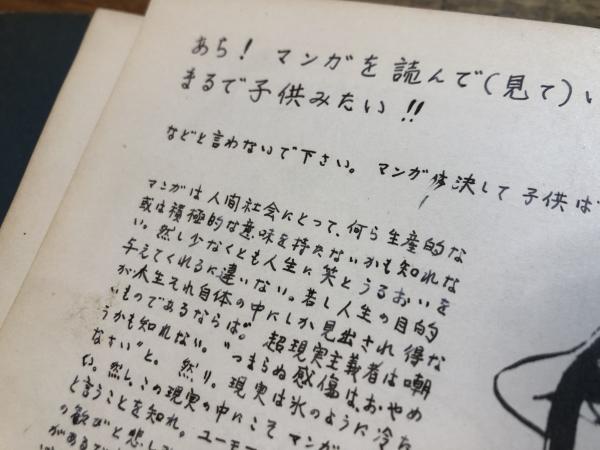 あら! マンガを読んで(見て)い
まるで子供みたい!!
などと言わないで下さい。 マンガは決して子供ば
マンガは人間社会にとって、何ら生産的な
或は積極的な意味を持たないかも知れな
い。然し少なくとも人生に笑とうるおいを
与えてくれるに違いない。若し人生の目的
が人生それ自体の中にしか見出され得な
いものであるならば。 超現実主義者は嘲
うかも知れない。"つまらぬ感傷はおやめ
なさい"と。然り。現実は氷のように冷た
い。然し、この現実の中にこそマンガ
と言うことを知れ。ユーモ
の歓びと悲し
があるで